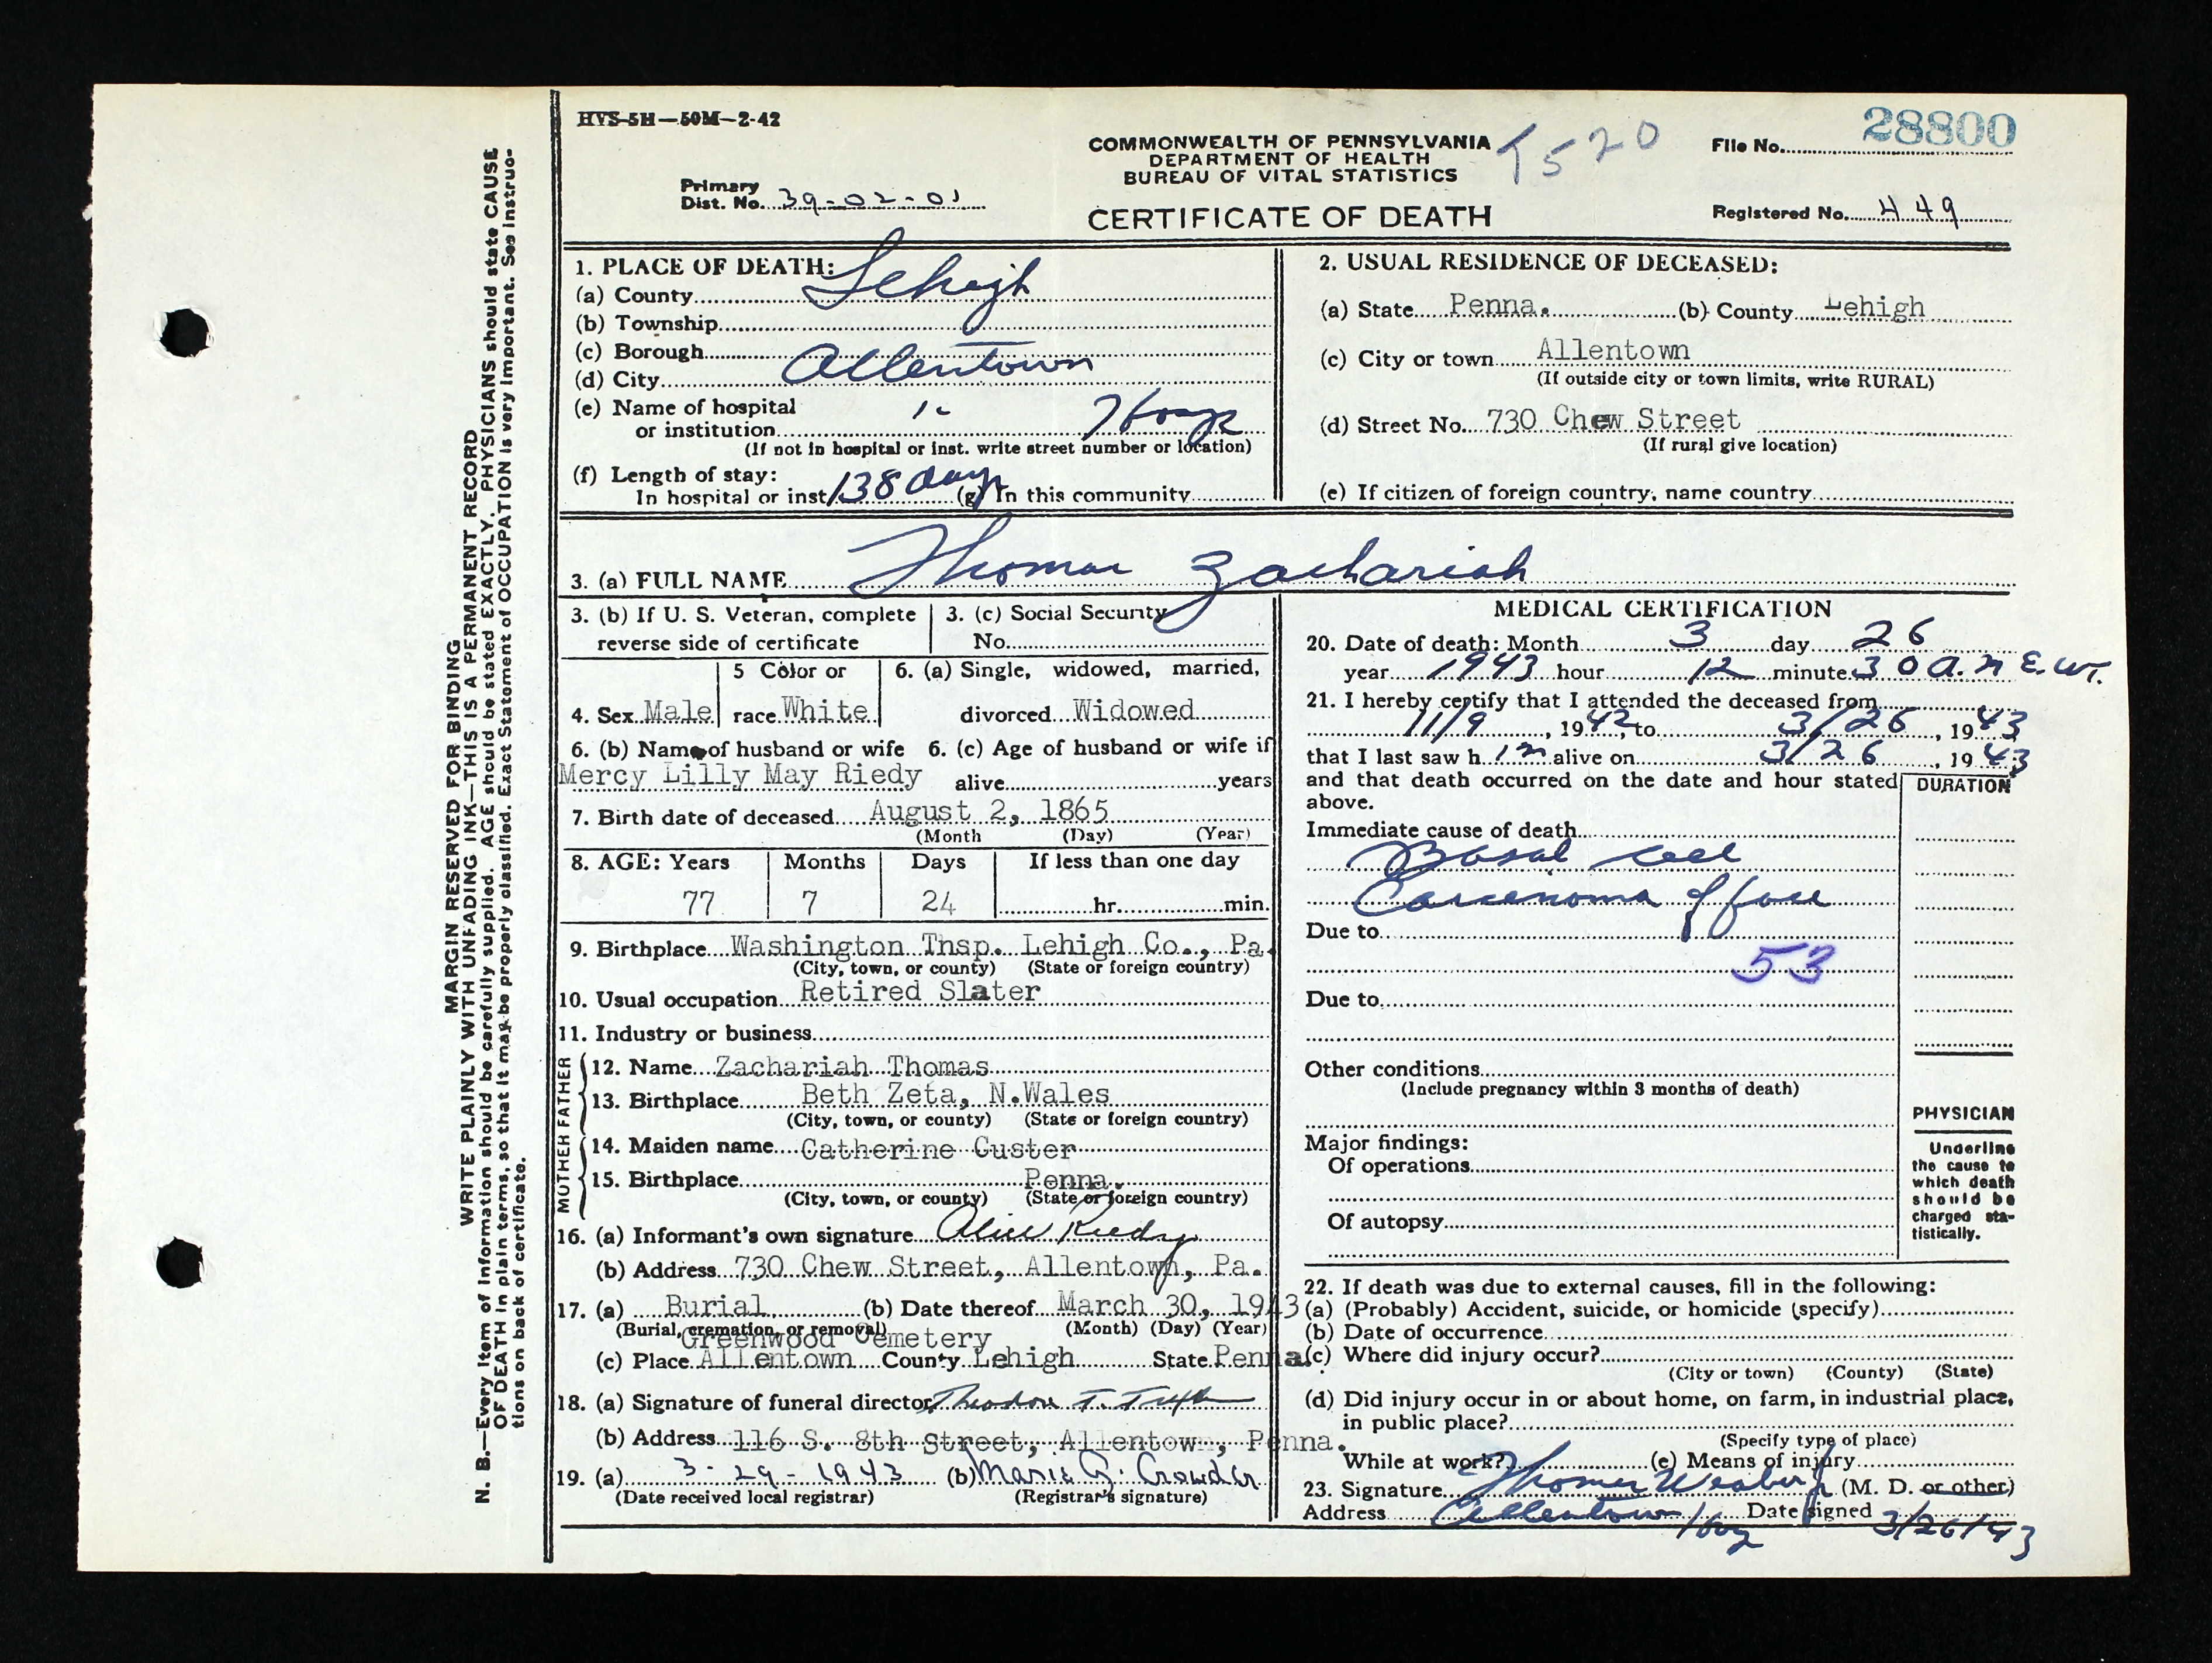 HVS-5H-50M-2-42
COMMONWEALTH OF PENNSYLVANIA
DEPARTMENT OF HEALTH
BUREAU OF VITAL STATISTICS
T520
File No. 28800
Primary
Dist. No. 39-02-01
CERTIFICATE OF DEATH
Registered No. 449
1. PLACE OF DEATH:
(a) County Lehigh
(b) Township
(c) Borough
(d) City Allentown
(e) Name of hospital
or institution " Hosp
(If not in hospital or inst. write street number or location)
(f) Length of stay:
In hospital or inst. 138 days (g) In this community
2. USUAL RESIDENCE OF DECEASED:
(a) State Penna. (b) County Lehigh
(c) City or town Allentown
(If outside city or town limits, write RURAL)
(d) Street No. 730 Chew Street
(If rural give location)
(e) If citizen of foreign country, name country
3. (a) FULL NAME Thomas Zachariah
3. (b) If U. S. Veteran, complete
reverse side of certificate
3. (c) Social Security
No.
4. Sex Male
5 Color or
race White
6. (a) Single, widowed, married,
divorced Widowed
6. (b) Name of husband or wife
Mercy Lilly May Riedy
6. (c) Age of husband or wife if
alive years
7. Birth date of deceased August 2, 1865
(Month (Day) (Year)
8. AGE: Years Months Days If less than one day
77 7 24 hr. min.
9. Birthplace Washington Tnsp. Lehigh Co., Pa.
(City, town, or county) (State or foreign country)
10. Usual occupation Retired Slater
11. Industry or business
FATHER
12. Name Zachariah Thomas
13. Birthplace Beth Zeta, N.Wales
(City, town, or county) (State or foreign country)
MOTHER
14. Maiden name Catherine Custer
15. Birthplace Penna.
(City, town, or county) (State or foreign country)
16. (a) Informant's own signature Alice Riedy
(b) Address 730 Chew Street, Allentown, Pa.
17. (a) Burial (b) Date thereof March 30, 1943
(Burial, cremation, or removal) (Month) (Day) (Year)
Greenwood Cemetery
(c) Place Allentown County Lehigh State Penna.
18. (a) Signature of funeral director Theodore T.
(b) Address 116 S. 8th Street, Allentown, Penna.
19. (a) 3-29-1943 (b) Marie G. Crowder
(Date received local registrar) (Registrar's signature)
MEDICAL CERTIFICATION
20. Date of death: Month 3 day 26
year 1943 hour 12 minute 30 a.m E.W.T.
21. I hereby certify that I attended the deceased from
11/9, 1942, to 3/26, 1943
that I last saw h im alive on 3/26, 1943
and that death occurred on the date and hour stated
above.
DURATION
Immediate cause of death
Basal cell
Carcinoma of face
Due to
53
Due to
Other conditions
(Include pregnancy within 3 months of death)
Major findings:
Of operations
Of autopsy
PHYSICIAN
Underline
the cause to
which death
should be
charged sta-
tistically.
22. If death was due to external causes, fill in the following:
(a) (Probably) Accident, suicide, or homicide (specify)
(b) Date of occurrence
(c) Where did injury occur?
(City or town) (County) (State)
(d) Did injury occur in or about home, on farm, in industrial place,
in public place?
(Specify type of place)
While at work? (e) Means of injury
23. Signature Thomas Weaber Jr (M. D. or other)
Address Allentown Hosp Date signed 3/26/43
MARGIN RESERVED FOR BINDING
WRITE PLAINLY WITH UNFADING INK—THIS IS A PERMANENT RECORD
N. B.—Every item of information should be carefully supplied. AGE should be stated EXACTLY. PHYSICIANS should state CAUSE
OF DEATH in plain terms, so that it may be properly classified. Exact Statement of OCCUPATION is very important. See instruc-
tions on back of certificate.